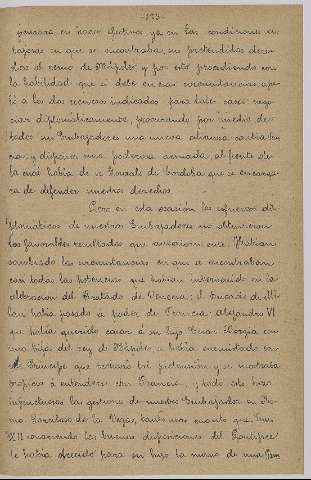 -123-
pensara en hacer efectivos ya en las condiciones ven
tajosas en que se encontraba, sus pretendidos dere
chos al reino de Nápoles y por esto procediendo con
la habilidad que él debe en esas circunstancias ape
ló a los dos recursos indicados para tales casos: nego
ciar diplomáticamente, procurando por medio de
todos sus Embajadores una nueva alianza contra Fran
cia, y disponer una poderosa armada, al frente de
la cual había de ir Gonzalo de Córdoba que se encarga
ra de defender nuestros derechos.
Pero en esta ocasión los esfuerzos di
plomáticos de nuestros Embajadores no obtuvieron
los favorables resultados que anteriormente. Habían
cambiado las circunstancias en que se encontraban
casi todas las potencias que habían intervenido en la
celebración del Tratado de Venecia; el Ducado de Mi
lán había pasado a poder de Francia, Alejandro VI
que había querido casar a su hijo César Borgia con
una hija del rey de Nápoles, y había encontrado en
este Príncipe que tal pretensión, y se mostraba
propicio a entenderse con Francia, y todo esto hizo
infructuosas las gestiones de nuestro Embajador en Ro
ma, Garcilaso de la Vega, tanto más cuanto que, Luis
XII conociendo las buenas disposiciones del Pontífice
le había ofrecido para su hijo la mano de una Prin